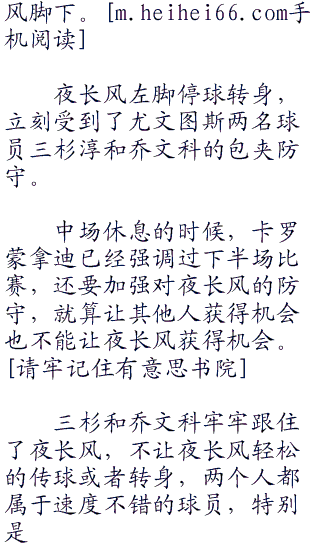 风脚下。[m.heihei66.com手
机阅读]
夜长风左脚停球转身，
立刻受到了尤文图斯两名球
员三杉淳和乔文科的包夹防
守。
中场休息的时候，卡罗
蒙拿迪已经强调过下半场比
赛，还要加强对夜长风的防
守，就算让其他人获得机会
也不能让夜长风获得机会。
[请牢记住有意思书院]
三杉和乔文科牢牢跟住
了夜长风，不让夜长风轻松
的传球或者转身，两个人都
属于速度不错的球员，特别
是